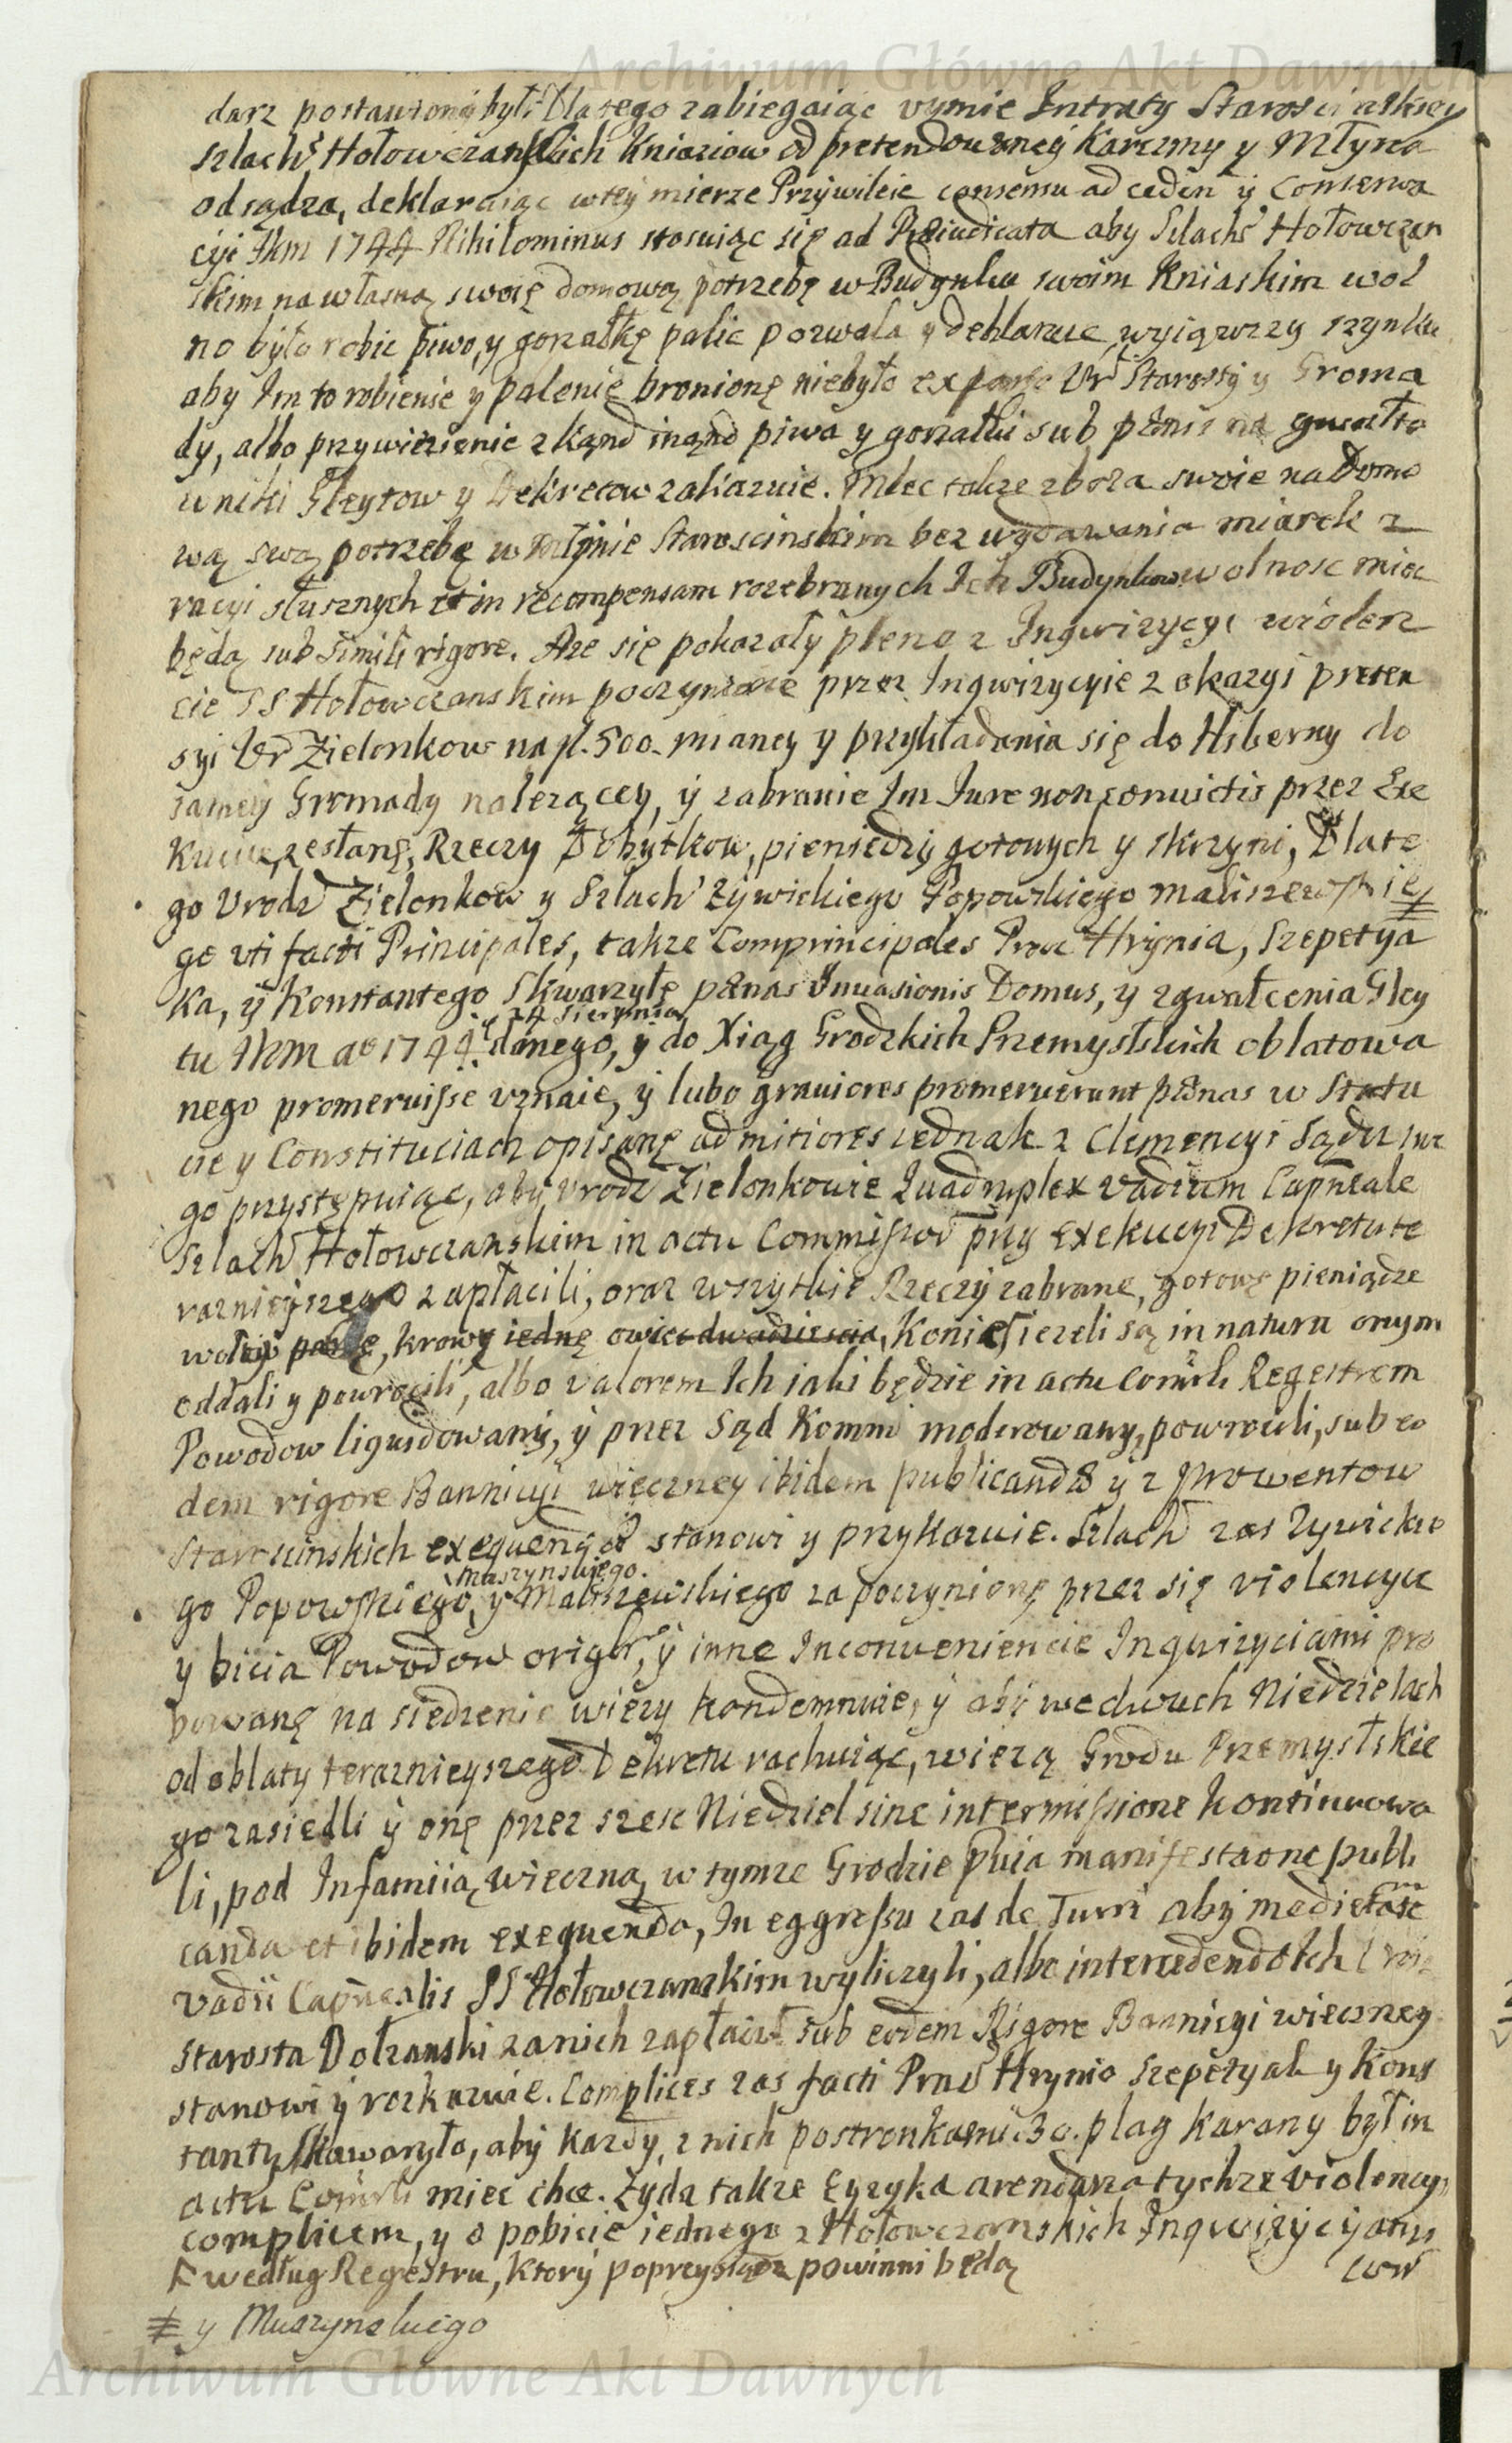 Archiwum Główne Akt Dawnych
darz postawiony był. Dlatego zabiegaiąc vymie Intraty Starosciskiey
Szlach Hołowczanskich Kniaziow od pretendowaney Karczmy y Młyna
odsądza, deklaraiąc wtey mierze Przywileie consensu ad ceden y Conserwa
cyi Jkm 1744 Nihilominus stosuiąc się ad Præiudicata aby Szlach Hołowczan
skim na własną swoię domową potrzebę w Budynku swoim Kniaskim wol
no było robic piwo, y gorzałkę palic pozwala y deklaruie, wyiąwszy szynku
aby Im to robienie y palenie bronionę niebyło ex parte Vr Starosty y Groma
dy, albo przywiezienie zkąnd inąnd piwa y gorzałki sub pænis na gwałto
wniki Gleytow y Dekretow zakazuie. Mlec takze zboza swoie na Domo
wą swą potrzebę w Młynie Staroscinskim bez wydawania miarek z
racyi słusznych et in recompensam rozebranych Ich Budynkow wolnosc miec
będą sub simili rigore. Aze się pokazały plena z Inqwizycyi violen
cie SS Hołowczanskim poczynione przez Inqwizycyie z okazyi preten
syi Vr Zielonkow na fl. 500. mianey y przykładania się do Hiberny do
samey Gromady nalezącey, y zabranie Im Iure non convictis przez Exe
kucuę zesłanę, Rzeczy Dobytkow, pieniedzy gotowych y skrzyni, Dlate
go Vrodz Zielonkow y Szlach Zywickiego Popowskiego Maliszewskie ‡
go vti facti Principales, takze Comprincipales Prac Hrynia, Szepetya
ka, y Konstantego Skwarzyłę pænas Invasionis Domus, y zgwałcenia Gley
24 Sierpnia
tu Jkm ao 1744 danego, y do Xiąg Grodzkich Przemyslskich oblatowa
nego promeruisse vznaie, y lubo graviores promeruerunt pænas w Statu
cie y Constituciach opisanę ad mitiores iednak z Clemencyi Sądu swe
go przystępuiąc, aby vrodz Zielonkowie Quadruplex vadium Capneale
Szlach Hołowczanskim in actu Commissor przy Exekucyi Dekretu te
razneyszego zapłacili, oraz wszytkie Rzeczy zabrane, gotowe pieniądze
woły parę, krowę iednę owiec dwadziescia, Konie, ieżeli są in natura onym
oddali y powrocili, albo valorem Ich iaki będzie in actu Comsli Regestrem
Powodow liguidowany, y przez Sąd Kommi moderowany, powrocili, sub eo
dem rigore Bannicyi wieczney ibidem publicandæ y z prowentow
Staroscinskich exequendæ stanowi y przykazuie. Szlach zas Zywickie
Muszynskiego.
go Popowskiego, y Maliszewskiego za poczynionę przez się violencye
y bicia Powodow origlr, y inne Inconveniencie Inqwizyciami pro
bowanę na siedzenie wiezy kondemnuie, y aby we dwuch Niedzielach
od oblaty teraznieyszego Dekretu rachuiąc, wiezą Grodu Przemysłskie
go zasiedli y onę przez szesc Niedziel sine intermissione kontinuowa
li, pod Infamiią wieczną, w tymze Grodzie pvia manifestaone publi
canda et ibidem exequenda, In eggressu zas de Turri aby medietate
vadii Capnealis SS Hołowczanskim wyliczyli, albo intercedendo Ich
Starosta Dolzanski zanich zapłacił sub eodem Rigore Bannicyi wieczney
stanowi y rozkazuie. Complices zas facti Prac Hrynia Szepetyak y Kons
tanty Skwarzyło, aby kazdy z nich postronkami 30. plag karany był in
actu Comsli miec chce. Zyda takze Eyzyka arendarza tychze violency
complicem, y o pobicie iednego z Hołowczanskich Inqwizycyami
F według Regestru, ktory poprzysiądz powinni będą
con
‡ y Muszynskiego
Archiwum Główne Akt Dawnych